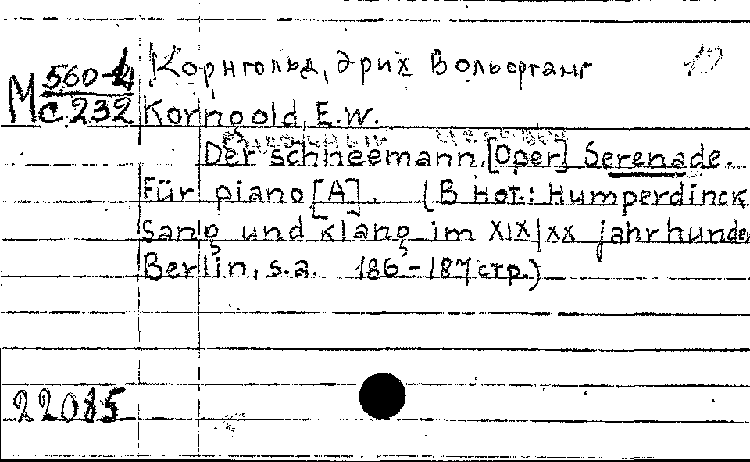 Корнгольд, Эрих Вольфганг
М 560-4
С 232
Korngold, E.W.
Der schneemann, [Oper] Serenade.
Für piano [A]. (В нот.: Humperdinck
Sang und klang im XIX/XX jahrhunder
Berlin, s.a. 186-187 стр.)
22085